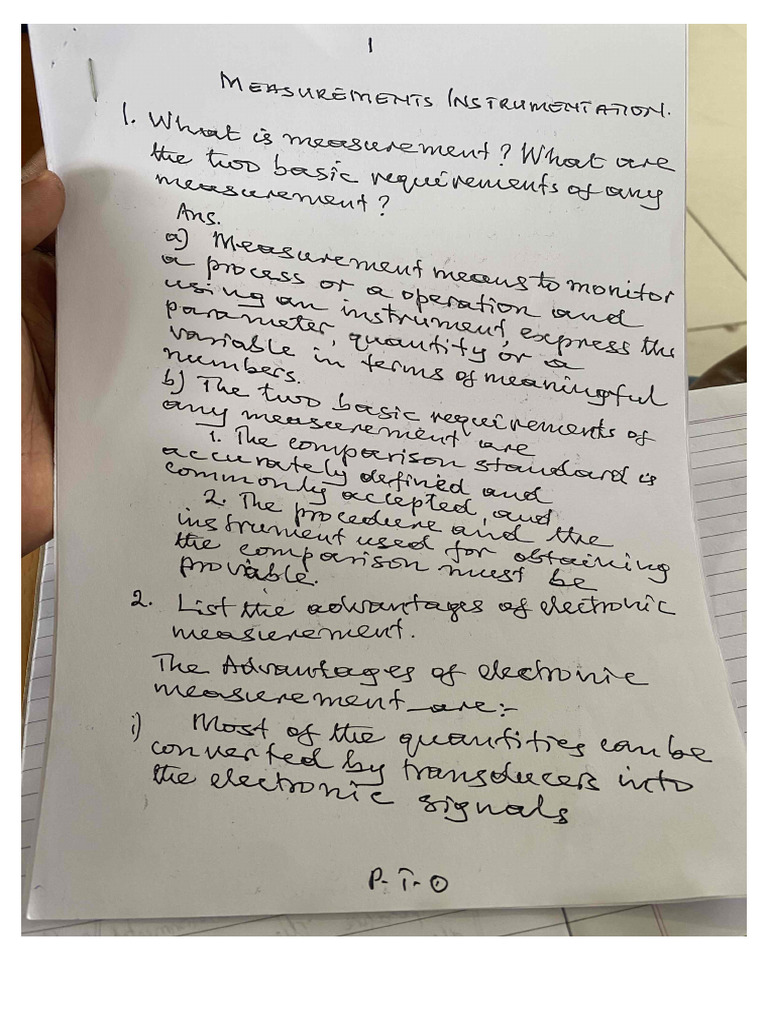 1
MEASUREMENTS INSTRUMENTATION.
1. What is measurement? What are
the two basic requirements of any
measurement?
Ans.
a) Measurement means to monitor
a process or a operation and
using an instrument, express the
parameter, quantity or a
variable in terms of meaningful
numbers.
b) The two basic requirements of
any measurement are
1. The comparison standard is
accurately defined and
commonly accepted, and
2. The procedure and the
instrument used for obtaining
the comparison must be
provable.
2. List the advantages of electronic
measurement.
The Advantages of electronic
measurement are:-
i) Most of the quantities can be
converted by transducers into
the electronic signals
P.T.O